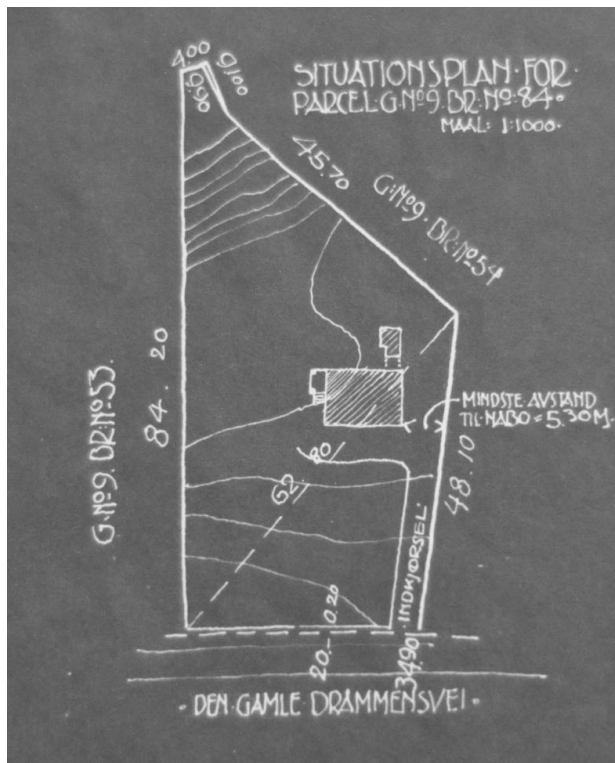 SITUATIONSPLAN·FOR·
PARCEL·G.Nº9.BR.Nº84.
MAAL: 1:1000.
4.00
9.00
45.70
G.Nº9. BR.Nº54
G.Nº9. BR.Nº53.
84.20
MINDSTE AVSTAND
TIL NABO = 5.30 M.
48.10
80
62
INDKJØRSEL.
0.20
20.-
34.90
·DEN·GAMLE DRAMMENSVEI·